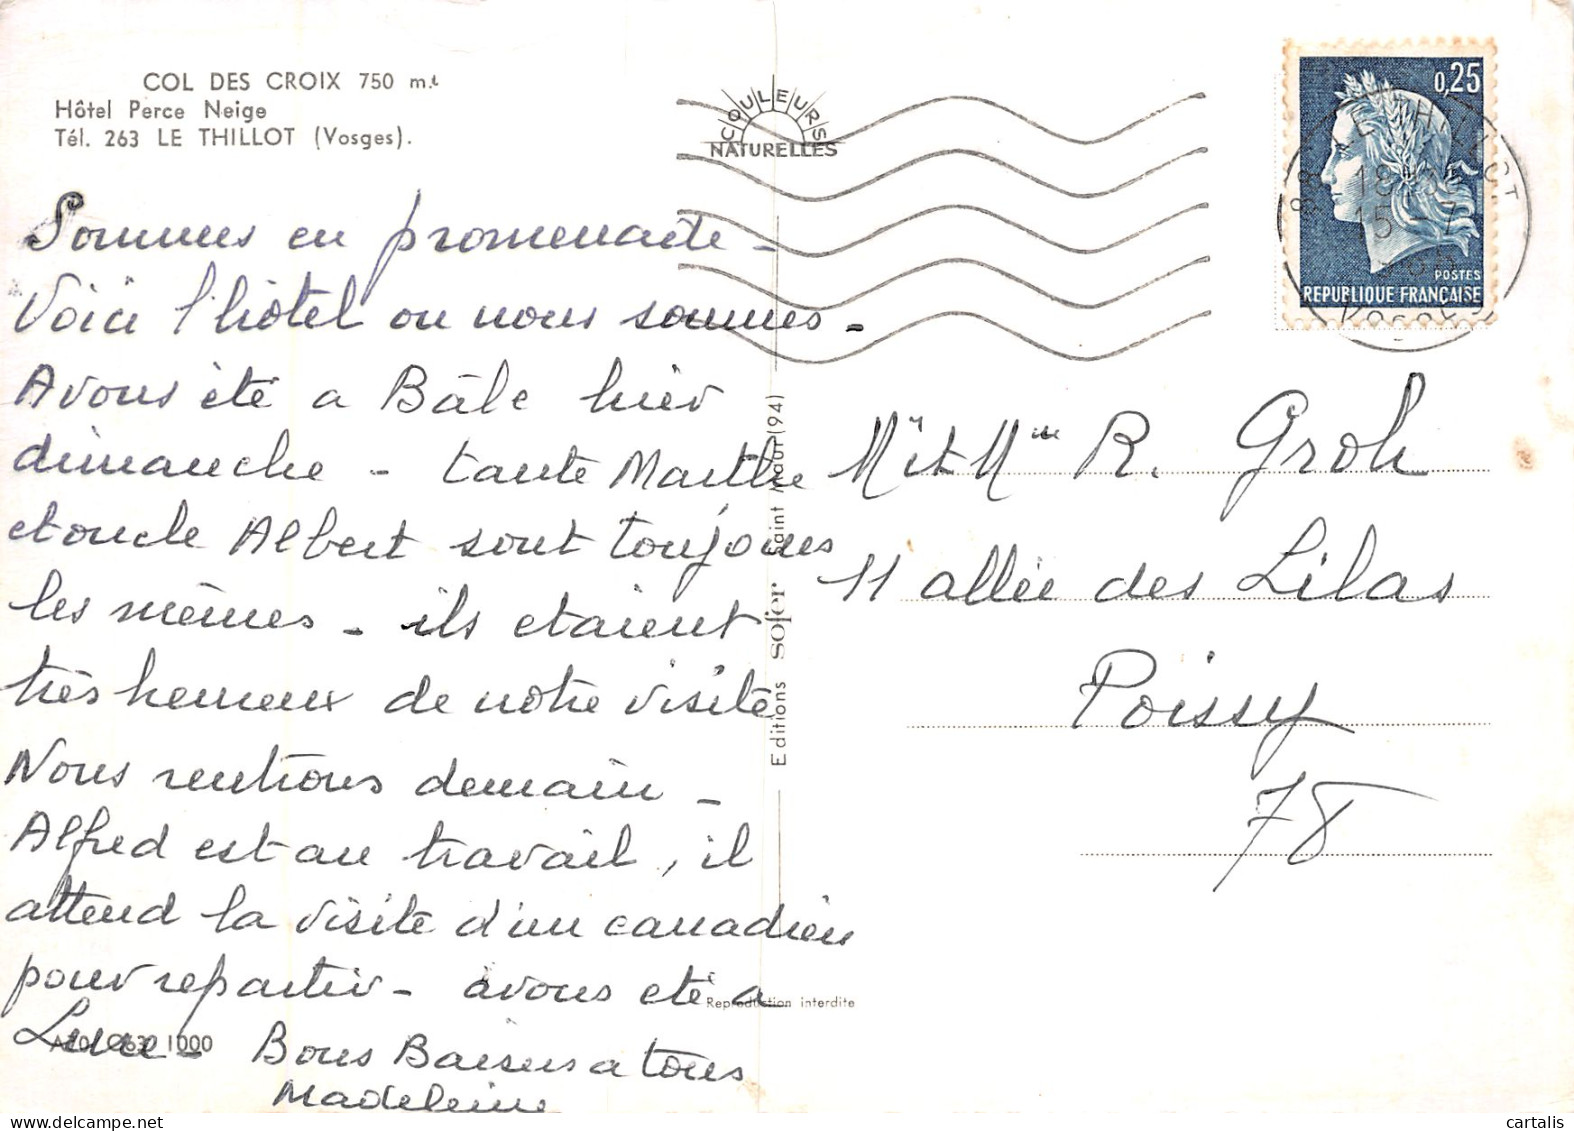 COL DES CROIX 750 m.
Hôtel Perce Neige
Tél. 263 LE THILLOT (Vosges).
COULEURS
NATURELLES
0,25
POSTES
REPUBLIQUE FRANÇAISE
88 LE THILLOT
18H
15-7
VOSGES
Sommes en promenade -
Voici l'hôtel ou nous sommes -
Avons été a Bâle hier
dimanche - tante Marthe
et oncle Albert sont toujours
les mêmes - ils etaient
très heureux de notre visite
Nous rentrons demain -
Alfred est au travail, il
attend la visite d'un canadien
pour repartir - avons eté a
Lure - Bons Baisers a tous
Madeleine
Mr et Mme R. Groh
11 allée des Lilas
Poissy
78
Editions sofer Saint Maur (94)
Reproduction interdite
1000
cartalis